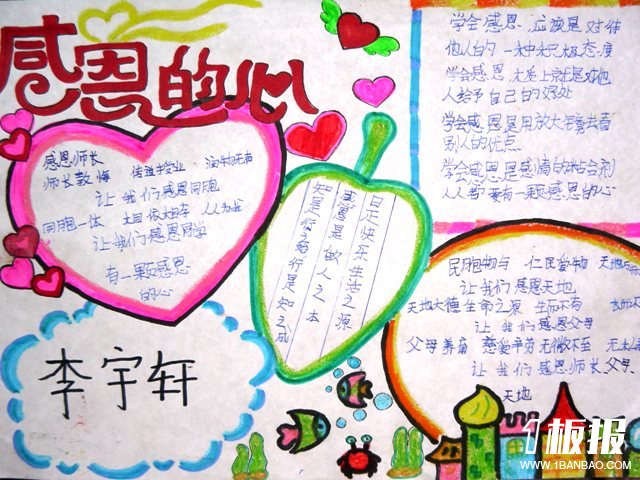 感恩的心
学会感恩，应该是对待
他人的一种积极态度
学会感恩，本质上就是对他
人给予自己的好处
学会感恩是用放大镜去看
别人的优点
学会感恩是感情的粘合剂
人人都要有一颗感恩的心
感恩师长
师长教悔 传道授业·润物无声
让我们感恩同胞
同胞一体
让我们感恩同学
有一颗感恩
的心
日正快乐 生活之源
感恩是做人之本
知是行之始行是知之成
民胞物与 仁民爱物
让我们感恩天地
天地大德 生命之源 生而不有
让我们感恩父母
父母养育 慈爱辛劳 无微不至
让我们感恩师长 父母、
天地
李宇轩
1板报
WWW.1BANBAO.COM